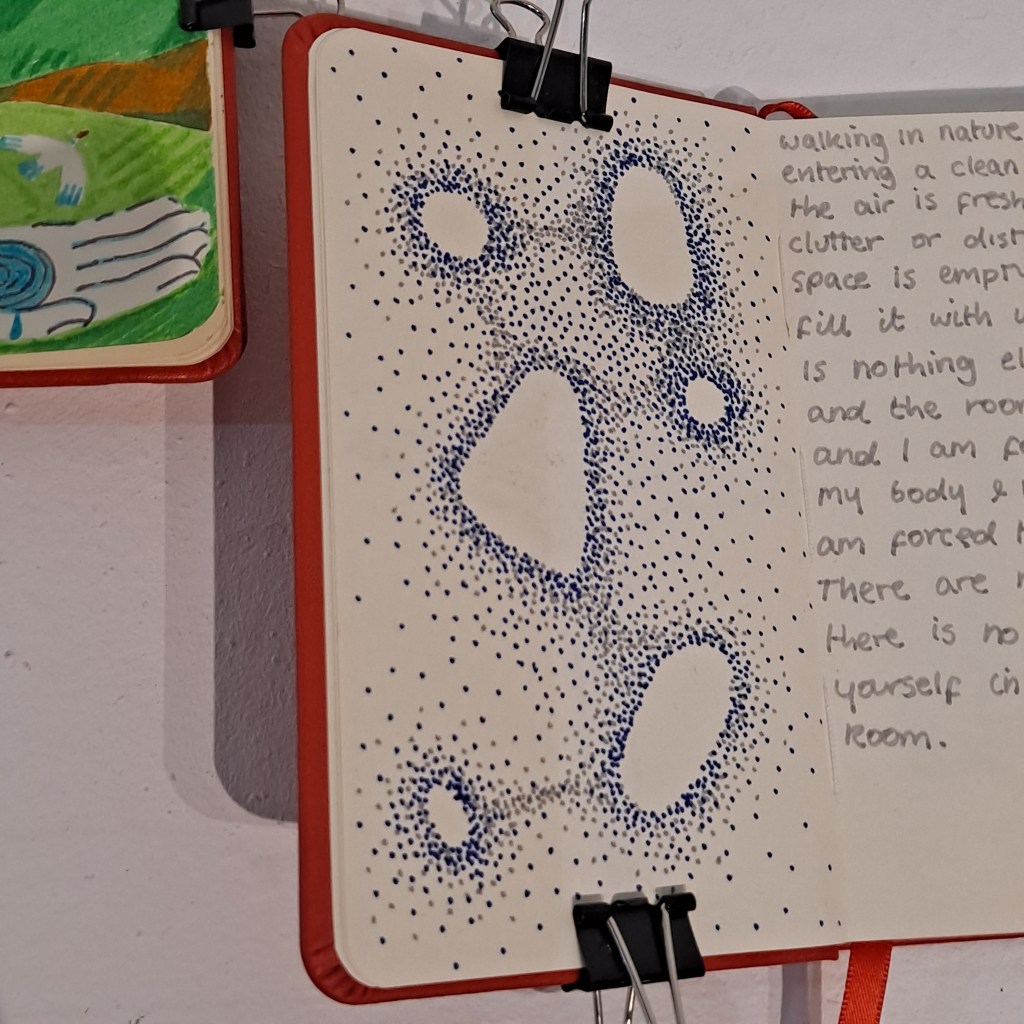 walking in nature
entering a clean
the air is fresh
clutter or
space is
fill it with
is nothing
and the room
and I am
my body &
am forced
There are
there is no
yourself in
room.